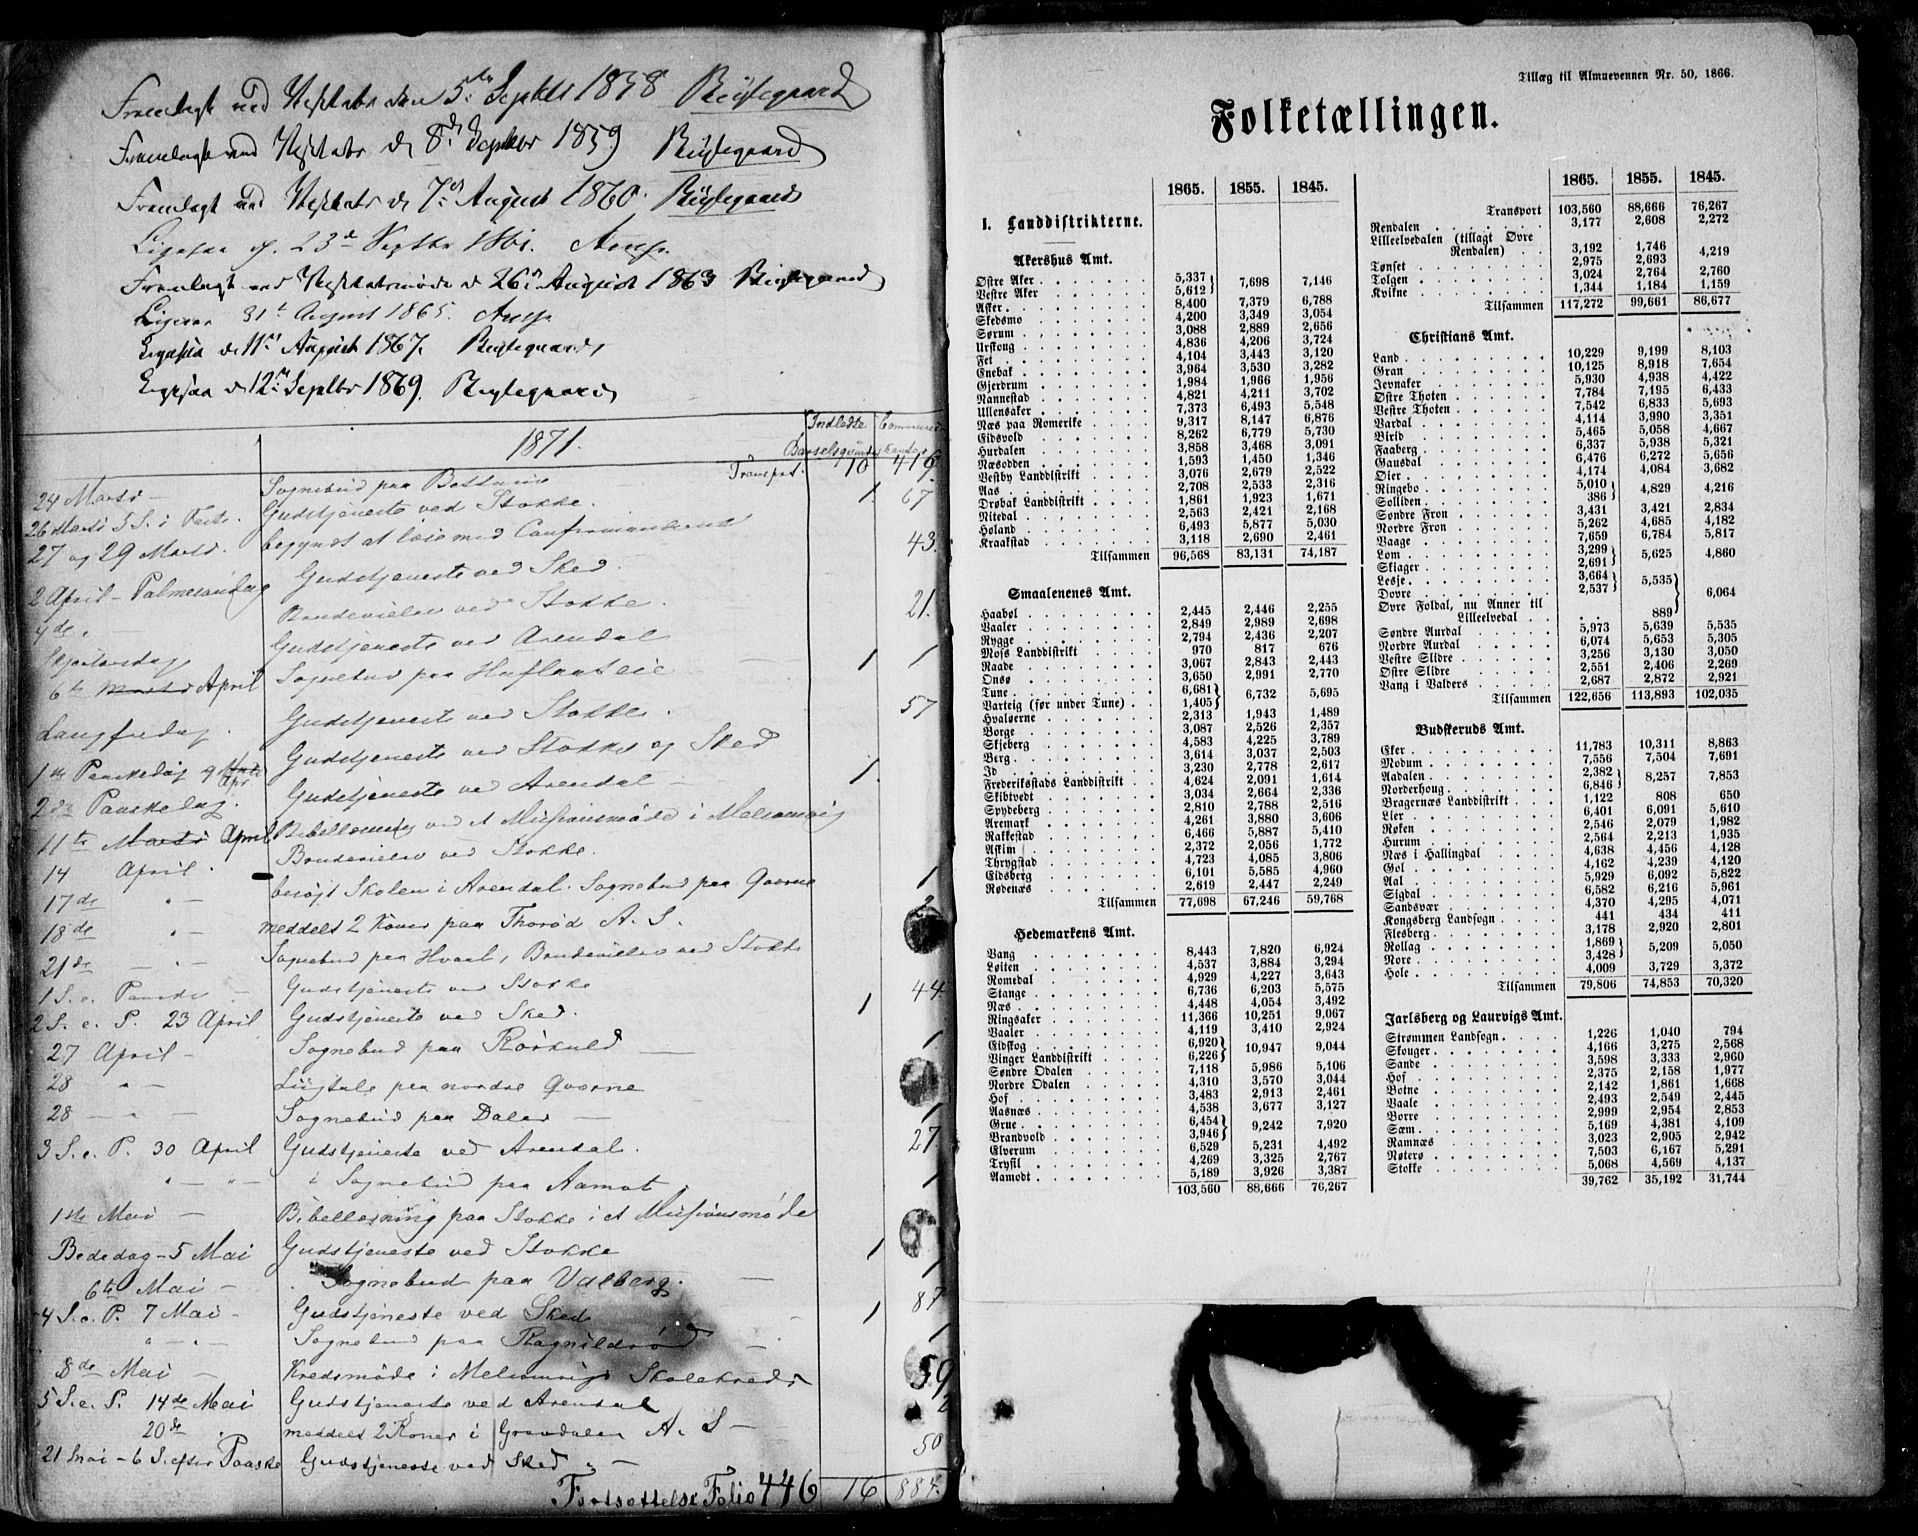 Fremlagt ved Visitats den 5te Septbr 1858 Reistegaard
Fremlagt ved Visitats d 8de Septbr 1859
Fremlagt ved Visitats d 7de August 1860
Ligesaa d. 23de Septbr 1861.
Fremlagt ved Visitatsmøde d 26de August 1863
Ligesaa 31te August 1865.
Ligesaa d 11te August 1867.
Ligesaa d 12te Septbr 1869.
1871. Indledte Barselqvinder Communicanter
Transport. 10 416.
24 Marts – Sognebud paa
26 Marts 5 S. i Faste. Gudstjeneste ved Stokke. 1 67
27 og 29 Marts. begyndt at læse med Confirmanderne
2 April – Palmesøndag Gudstjeneste ved Sked. 43.
4de " – Brudevielse ved Stokke.
Skjærtorsdag Gudstjeneste ved Arendal 21.
6te Marts April Sognebud paa 1 1
Langfredag. Gudstjeneste ved Stokke. 57
1ste Paaskedag 9 Marts Apr Gudstjeneste ved Stokke og Sked
2den Paaskedag. Gudstjeneste ved Arendal – 1.
11te Marts April Bibellæsning ved et Missionsmøde i Melsomvig
14 April. Brudevielse ved Stokke.
17de " – besøgt Skolen i Arendal. Sognebud paa Qværne 1
18de " – meddelt 2 Koner paa Thorød A. S. 2
21de – " – Sognebud paa Hvaal, Brudevielse ved Stokke
1 S. e. Paaske – Gudstjeneste ved Stokke 44.
2 S. e. P. 23 April Gudstjeneste ved Sked. 1
27 April – Sognebud paa Rørkuld 1.
28 " – Liigtale paa nordre Qværne
28 – " – Sognebud paa Dalen 1
3 S. e. P. 30 April Gudstjeneste ved Arendal. 27.
" – " – Sognebud paa Aamot 1
1ste Mai – Bibellæsning paa Stokke i et Missionsmøde
Bededag – 5 Mai Gudstjeneste ved Stokke 1
6te Mai – Sognebud paa Valberg. 1
4 S. e. P. 7 Mai – Gudstjeneste ved Sked 1 87
" – " – Sognebud paa Ragnildrød 1
8de Mai – Kredsmøde i Melsomvigs Skolekreds
5 S. e. P. 14de Mai Gudstjeneste ved Arendal 59
20de meddelt 2 Koner i Gravdalen A. S – 2
21 Mai – 6 S. efter Paaske Gudstjeneste ved Sked " – 50
Fortsættelse Folio 446 16 884.
Tillæg til Almuevennen Nr. 50, 1866.
Folketællingen.
1865. 1855. 1845.
I. Landdistrikterne.
Akershus Amt.
Østre Aker 5,337 } 7,698 7,146
Vestre Aker 5,612 }
Asker 8,400 7,379 6,788
Skedsmo 4,200 3,349 3,054
Sørum 3,088 2,889 2,656
Urskong 4,836 4,206 3,724
Fet 4,104 3,443 3,120
Enebak 3,964 3,530 3,282
Gjerdrum 1,984 1,966 1,956
Nannestad 4,821 4,211 3,702
Ullensaker 7,373 6,493 5,548
Næs paa Romerike 9,317 8,147 6,876
Eidsvold 8,262 6,779 5,730
Hurdalen 3,858 3,468 3,091
Næsodden 1,593 1,450 1,346
Vestby Landdistrikt 3,076 2,679 2,522
Aas 2,708 2,533 2,316
Drøbak Landdistrikt 1,861 1,923 1,671
Nitedal 2,563 2,421 2,168
Høland 6,493 5,877 5,030
Kraakstad 3,118 2,690 2,461
Tilsammen 96,568 83,131 74,187
Smaalenenes Amt.
Haabøl 2,445 2,446 2,255
Vaaler 2,849 2,989 2,698
Rygge 2,794 2,436 2,207
Moss Landdistrikt 970 817 676
Raade 3,067 2,843 2,443
Onsø 3,650 2,991 2,770
Tune 6,681 } 6,732 5,695
Varteig (før under Tune) 1,405 }
Hvaløerne 2,313 1,943 1,489
Borge 3,087 2,526 2,357
Skjeberg 4,583 4,225 3,789
Berg 3,614 3,037 2,503
Id 3,230 2,778 2,617
Frederiksstads Landdistrikt 4,624 2,091 1,614
Skibtvedt 3,034 2,664 2,336
Spydeberg 2,810 2,788 2,516
Aremark 4,261 3,880 3,606
Rakkestad 6,466 5,887 5,410
Askim 2,372 2,056 1,772
Thrygstad 4,723 4,085 3,806
Eidsberg 6,101 5,585 4,960
Rødenæs 2,619 2,447 2,249
Tilsammen 77,698 67,246 59,768
Hedemarkens Amt.
Vang 8,443 7,820 6,924
Løiten 4,537 3,884 3,294
Romedal 4,929 4,227 3,643
Stange 6,736 6,203 5,575
Næs 4,448 4,054 3,492
Ringsaker 11,366 10,251 9,067
Vaaler 4,119 3,410 2,924
Eidskog 6,920 } 10,947 9,044
Vinger Landdistrikt 6,226 }
Søndre Odalen 7,118 5,986 5,106
Nordre Odalen 4,310 3,570 3,044
Hof 3,483 2,913 2,461
Aasnæs 4,538 3,677 3,127
Grue 6,454 } 9,242 7,920
Brandvold 3,946 }
Elverum 6,529 5,231 4,492
Trysil 4,269 3,325 2,767
Aamodt 5,189 3,926 3,387
103,560 88,666 76,267
1865. 1855. 1845.
Transport 103,560 88,666 76,267
Rendalen 3,177 2,608 2,272
Lilleelvedalen (tillagt Øvre
Rendalen) 3,192 1,746 4,219
Tønset 2,975 2,693
Tolgen 3,024 2,764 2,760
Kvikne 1,344 1,184 1,159
Tilsammen 117,272 99,661 86,677
Christians Amt.
Land 10,229 9,199 8,103
Gran 10,125 8,918 7,654
Jevnaker 5,930 4,938 4,422
Østre Thoten 7,784 7,195 6,433
Vestre Thoten 7,542 6,833 5,693
Vardal 4,114 3,990 3,351
Birid 5,465 5,058 4,667
Faaberg 6,337 5,938 5,321
Gausdal 6,476 6,272 5,656
Øier 4,174 4,084 3,682
Ringebo 5,010 } 4,829 4,216
Solliden 386 }
Søndre Fron 3,431 3,421 2,834
Nordre Fron 5,262 4,685 4,182
Vaage 7,659 6,784 5,817
Lom 3,299 } 5,625 4,860
Skiager 2,691 }
Lesje 3,664 } 5,535 } 6,064
Dovre 2,537 }
Øvre Foldal, nu Anner til
Lilleelvedal . . 889 }
Søndre Aurdal 5,973 5,639 5,535
Nordre Aurdal 6,074 5,653 5,305
Vestre Slidre 3,256 3,130 3,050
Østre Slidre 2,551 2,406 2,269
Vang i Valders 2,687 2,872 2,921
Tilsammen 122,656 113,893 102,035
Budskeruds Amt.
Eker 11,783 10,311 8,863
Modum 7,556 7,504 7,691
Aadalen 2,382 } 8,257 7,853
Norderhoug 6,846 }
Bragernæs Landdistrikt 1,122 808 650
Lier 6,401 6,091 5,610
Røken 2,546 2,079 1,982
Hurum 2,564 2,213 1,935
Næs i Hallingdal 4,638 4,456 4,128
Gol 4,162 4,239 4,120
Aal 5,929 6,092 5,822
Sigdal 6,582 6,216 5,961
Sandsvær 4,370 4,295 4,071
Kongsberg Landsogn 441 434 411
Flesberg 3,178 2,920 2,801
Rollag 1,869 } 5,209 5,050
Nore 3,428 }
Hole 4,009 3,729 3,372
Tilsammen 79,806 74,853 70,320
Jarlsberg og Laurvigs Amt.
Strømmen Landsogn 1,226 1,040 794
Skouger 4,166 3,275 2,568
Sande 3,598 3,333 2,960
Hof 2,375 2,158 1,977
Botne 2,142 1,861 1,668
Vaale 2,493 2,549 2,445
Borre 2,999 2,954 2,853
Sæm 5,169 4,381 4,109
Ramnæs 3,023 2,905 2,942
Nøterø 7,503 6,167 5,291
Stokke 5,068 4,569 4,137
39,762 35,192 31,744